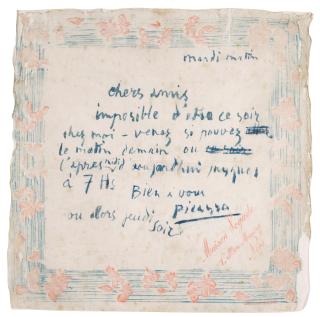 mardi matin
chers amis
imposible d'etre ce soir
chez moi - venez si pouvez
le matin demain ou
(l'apres midi) aujourd'hui jusques
à 7 Hs
Bien a vous
Picasso
ou alors jeudi
soir
Maison